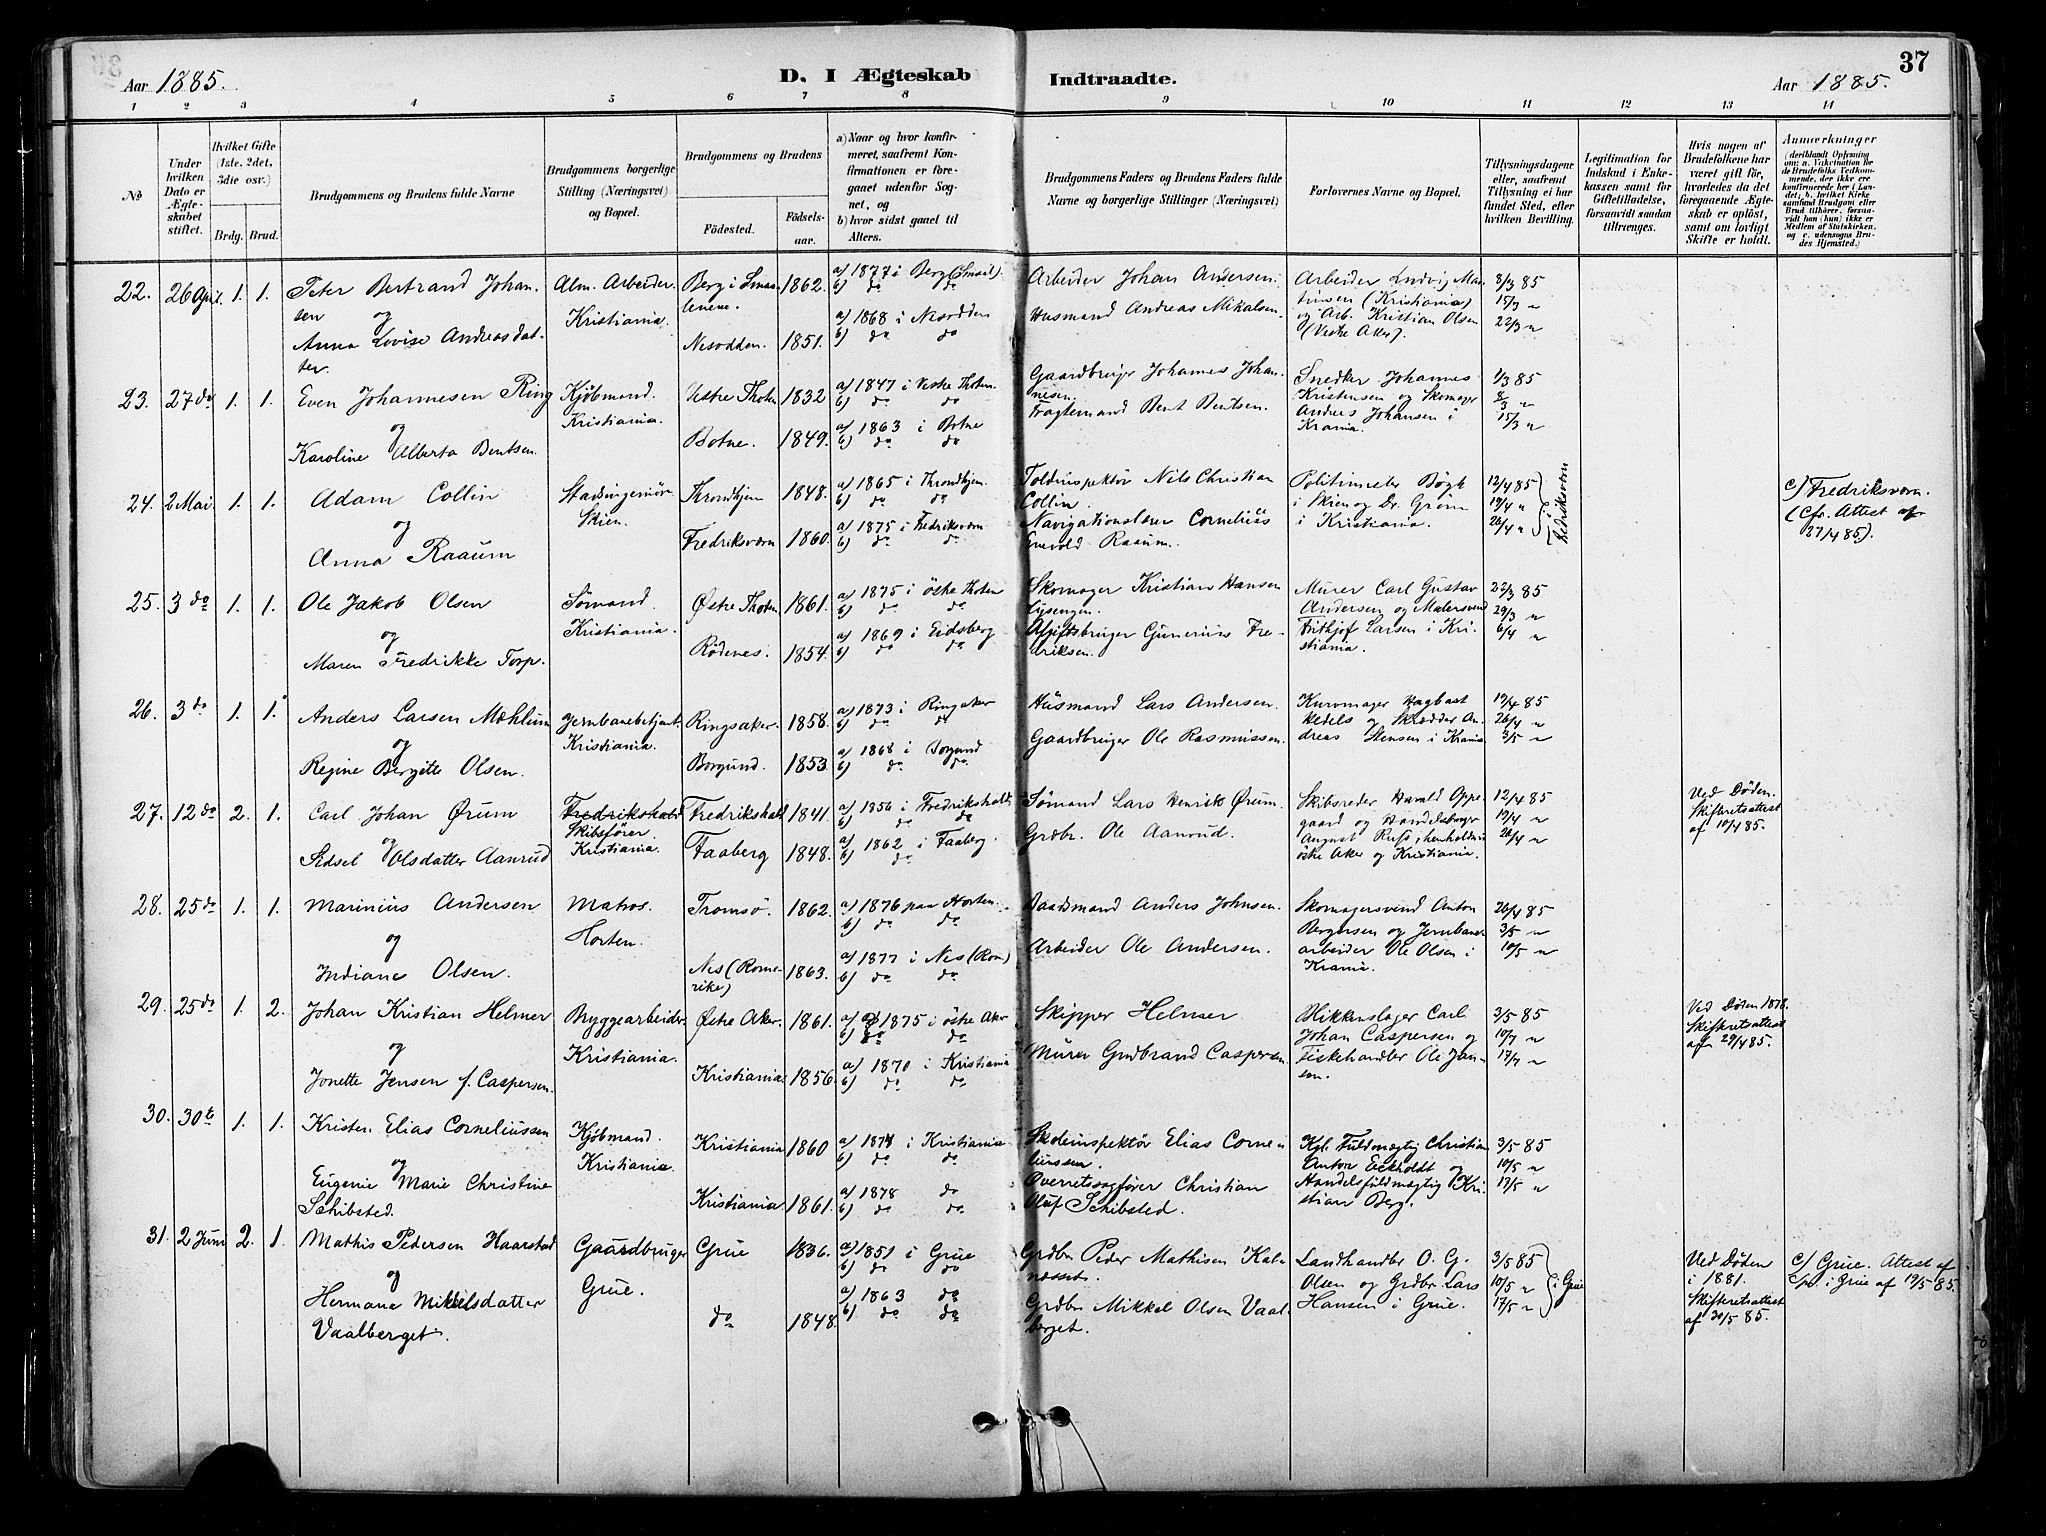 37
Aar 1885. D. I Ægteskab Indtraadte. Aar 1885.
1 2 3 4 5 6 7 8 9 10 11 12 13 14
No
Under hvilken Dato er Ægteskabet stiftet.
Hvilket Gifte (1ste, 2det, 3die osv.)
Brdg. Brud.
Brudgommens og Brudens fulde Navne
Brudgommens borgerlige Stilling (Næringsvei) og Bopæl.
Brudgommens og Brudens
Födested. Födselsaar.
a) Naar og hvor konfirmeret, saafremt Konfirmationen er foregaaet udenfor Sognet, og
b) hvor sidst gaaet til Alters.
Brudgommens Faders og Brudens Faders fulde Navne og borgerlige Stillinger (Næringsvei)
Forlovernes Navne og Bopæl.
Tillysningsdagene eller, saafremt Tillysning ei har fundet Sted, efter hvilken Bevilling.
Legitimation for Indskud i Enkekassen samt for Giftetilladelse, forsaavidt saadan tiltrænges.
Hvis nogen af Brudefolkene har været gift før, hvorledes da det foregaaende Ægteskab er opløst, samt om lovligt Skifte er holdt.
Anmærkninger (deriblandt Oplysning om: a. Vakcination for de Brudefolks Vedkommende, der ikke ere konfirmerede her i Landet, b. hvilket Kirkesamfund Brudgom eller Brud tilhører, forsaavidt han (hun) ikke er Medlem af Statskirken, og c. udensogns Brudes Hjemsted.)
22. 26 April. 1. 1. Peter Bertrand Johansen og Anna Lovise Andreasdatter. Alm. Arbeider. Kristiania. Berg i Smaalenene. 1862. a) 1877 i Berg (Smaal). b) do do
Nesodden. 1851. a) 1868 i Nesodden b) do do
Arbeider Johan Andersen. Husmand Andreas Mikalsen. Arbeider Ludvig Martinsen (Kristiania) og Arb. Kristian Olsen (Vestre Aker). 8/3 85 15/3 " 22/3 "
23. 27 do 1. 1. Even Johannesen Ring og Karoline Alberta Bentsen. Kjøbmand. Kristiania. Vestre Thoten 1832 a) 1847 i Vestre Thoten. b) do do
Botne. 1849. a) 1863 i Botne b) do do
Gaardbruger Johannes Johannesen. Fragtemand Bent Bentsen. Snedker Johannes Kristensen og Skomager Andreas Johansen i Krania. 1/3 85 8/3 " 15/3 "
24. 2 Mai. 1. 1. Adam Collin og Anna Raaum Stadsingeniør. Skien. Throndhjem 1848. a) 1865 i Throndhjem. b) do do
Fredriksværn 1860. a) 1875 i Fredriksværn b) do do
Toldinspektør Nils Christian Collin. Navigationslærer Cornelius Enevold Raaum. Politimester Bøgh i Skien og Dr. Grøm i Kristiania. 12/4 85 19/4 " 26/4 " i Fredriksværn c) Fredriksværn. (Cfr. Attest af 27/4 85).
25. 3 do 1. 1. Ole Jakob Olsen og Maren Fredrikke Torp. Sømand. Kristiania. Østre Thoten 1861. a) 1875 i østre Thoten b) do do
Rødenes. 1854. a) 1869 i Eidsberg b) do do
Skomager Kristian Hansen Lysengen. Afgiftsbruger Gunerius Fredriksen. Murer Carl Gustav Andersen og Malersvend Frithjof Larsen i Kristiania. 22/3 85 29/3 " 6/4 "
26. 3 do 1. 1. Anders Larsen Mæhlum og Regine Bergitte Olsen. Jernbanebetjent. Kristiania. Ringsaker. 1858. a) 1873 i Ringsaker b) do do
Borgund. 1853. a) 1868 i Borgund b) do do
Husmand Lars Andersen. Gaardbruger Ole Rasmussen. Kurvmager Hagbart Kedels og Skrædder Andreas Stensen i Krania. 19/4 85 26/4 " 3/5 "
27. 12 do 2. 1. Carl Johan Ørum og Sidsel Olsdatter Aanrud Fredrikshald Skibsfører. Kristiania. Fredrikshald 1841. a) 1856 i Fredrikshald. b) do do
Faaberg 1848. a) 1862 i Faaberg. b) do
Sømand Lars Henrik Ørum. Grdbr. Ole Aanrud. Skibsreder Harald Oppegaard og Handelsborger August Russ, henholdsvis østre Aker og Kristiania. 12/4 85 19/4 " 26/4 " Ved Døden. Skifteretsattest af 10/4 85.
28. 25 do 1. 1. Marinius Andersen og Indiane Olsen. Matros. Horten. Tromsø. 1862. a) 1876 paa Horten. b) do do
Nes (Romerike) 1863. a) 1877 i Nes (Rom) b) do do
Baadsmand Anders Johnsen. Arbeider Ole Andersen. Skomagersvend Anton Bergersen og Jernbanearbeider Ole Olsen i Krania. 26/4 85 3/5 " 10/5 "
29. 25 do 1. 2. Johan Kristian Helmer og Jonette Jensen f. Caspersen. Bryggearbeider. Kristiania. Østre Aker. 1861. a) 1875 i østre Aker b) do do
Kristiania 1856. a) 1870 i Kristiania b) do do
Skipper Helmer. Murer Gudbrand Caspersen. Blikkenslager Carl Johan Caspersen og Fiskehandler Ole Jansen. 3/5 85 10/5 " 17/5 " Ved Døden 1878. Skifteretsattest af 29/4 85.
30. 30te 1. 1. Kristen Elias Corneliussen og Eugenie Marie Christine Schibsted. Kjøbmand. Kristiania. Kristiania 1860 a) 1878 i Kristiania. b) do do
Kristiania 1861. a) 1878 do b) do do
Skoleinspektør Elias Corneliussen. Overretssagfører Christian Oluf Schibsted. Kgl. Fuldmægtig Christian Anton Eckholdt og Handelsfuldmægtig Kristian Berg. 3/5 85 10/5 " 17/5 "
31. 2 Juni 2. 1. Mathis Pedersen Haarstad og Hermane Mikkelsdatter Vaalberget. Gaardbruger Grue. Grue 1836. a) 1851 i Grue b) do do
do 1848. a) 1863 do b) do do
Grdbr Peder Mathisen Kalnæsset. Grdbr Mikkel Olsen Vaalberget. Landhandler O. G. Olsen og Grdbr. Lars Hansen i Grue. 3/5 85 10/5 " 17/5 " i Grue Ved Døden i 1881. Skifteretsattest af 20/5 85. c) Grue. Attest af Spr. i Grue af 19/5 85.